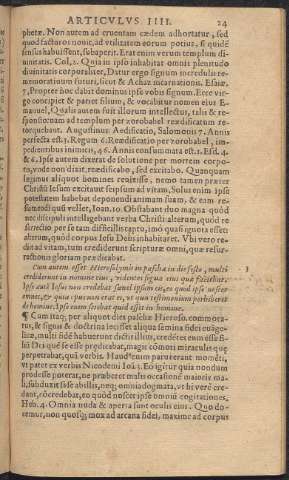 ARTICVLVS IIII. 24
phetæ. Non autem ad cruentam cædem adhortatur, sed
quod facturos nouit, ad vtilitatem eorum potius, si quidē
insuas habuissent, subaperit. Erat enim verum templum di-
uinitatis. Col. 2. Quia in ipso inhabitat omnis plenitudo
diuinitatis corporaliter. Datur ergo signum incredulis re-
memorationis futuri, sicut & Achaz incarnationis. Esaiæ
7. Propter hoc dabit dominus ipse vobis signum. Ecce vir-
go concipiet & pariet filium, & vocabitur nomen eius E-
manuel. Qualis autem fuit illorum intellectus, talis & re-
sponsio: nam ad templum per zorobabel reædificatum re-
torquebant. Augustinus: Aedificatio, Salomonis 7. Annis
perfecta est. 3. Regum 6. Reædificatio per zorobabel, im-
pedientibus inimicis, 46. Annis consummata est. 1. Esd. 4.
& 6. Ipse autem dixerat de solutione per mortem corpo-
ris, vnde non dixit, reædificabo, sed excitabo. Quanquam
legimus aliquot homines reuixisse, nemo tamen præter
Christū Iesum excitauit seipsum ad vitam. Solus enim ipse
potestatem habebat deponendi animam suam, & eam re-
sumendi quū vellet, Ioan. 10. Obsignabant duo magna quòd
nec discipuli intellegebant verba Christi: alterum, quòd re
surrectio per se tam difficilis captu, imò quasi ignota esset:
alterum, quòd corpus Iesu Deus inhabitaret. Vbi vero re-
dijt ad vitam, tum crediderunt scripturæ omni, quæ resur-
rectionis gloriam prædicabat.
Cum autem esset Hierosolymis in pascha in die festo, multi
crediderunt in nomine eius, videntes signa eius quæ faciebat.
Ipse autē Iesus non credebat semet ipsum eis, eo quod ipse nosset
omnes, & quia opus non erat ei, vt quis testimonium perhiberet
de homine. Ipse enim sciebat quid esset in homine.
¶ Cum itaq; per aliquot dies paschæ Hieroso. commora-
tus, & signis & doctrina iecisset aliqua semina fidei euāge-
licæ, multi fidē habuerunt dictis illius, credētes eum esse fi-
liū Dei quē se esse prædicabat, magis cōmoti miraculis quę
perpetrabat, quā verbis. Haud enim paruerant momēti,
vt patet ex verbis Nicodemi Ioā. 3. Eo igitur quia nondum
prodesse poterat, ne præberet malis occasionē maioris ma-
li, subduxit sese ab illis, neq; omnia dogmata, vt hi verē cre-
dant, cōcredebat, eo quòd nosset ipse omniū cogitationes,
Heb. 4. Omnia nuda & aperta sunt oculis eius. Quo do-
cemur, non quosq; mox ad arcana fidei, maxime ad corpus